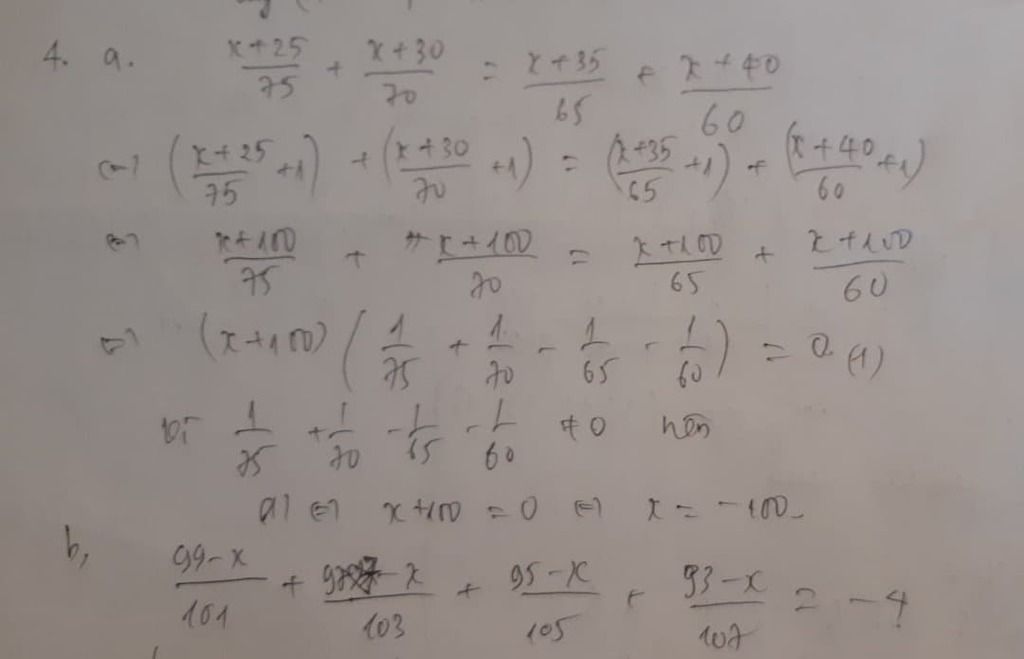 4. a. (x+25)/75 + (x+30)/70 = (x+35)/65 + (x+40)/60
<=> ((x+25)/75 +1) + ((x+30)/70 +1) = ((x+35)/65 +1) + ((x+40)/60 +1)
<=> (x+100)/75 + (x+100)/70 = (x+100)/65 + (x+100)/60
<=> (x+100) (1/75 + 1/70 - 1/65 - 1/60) = 0 (1)
Vì 1/75 + 1/70 - 1/65 - 1/60 ≠ 0 nên
(1) <=> x+100 = 0 <=> x = -100
b, (99-x)/101 + (97-x)/103 + (95-x)/105 + (93-x)/107 = -4